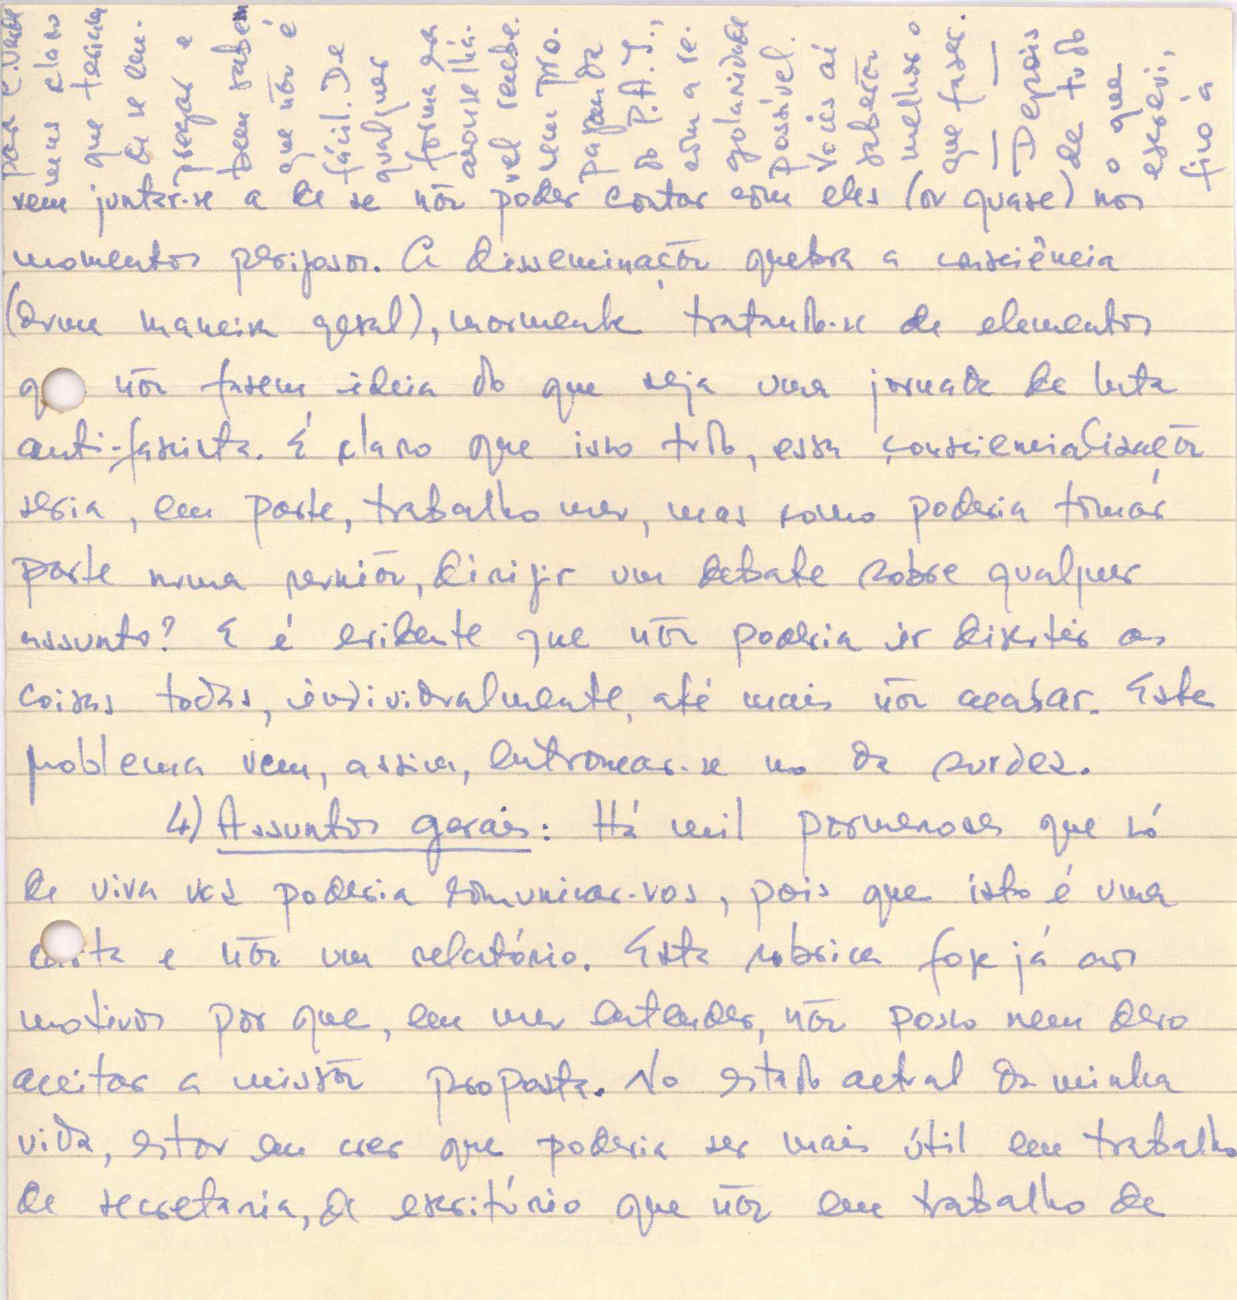 para C. Verde
mens claro
que teria
de se em-
pregar e
bem sabem
que não é
fácil. De
qualquer
forma era
aconselhá-
vel recebe-
rem pro-
paganda
do P.A.I.,
com a re-
gularidade
possível.
Vocês aí
saberão
melhor o
que fazer.
— —
Depois
de tudo
o que
escrevi,
fico à
vem juntar-se a de se não poder contar com eles (ou quase) nos
momentos perigosos. A disseminação quebra a consciência
(duma maneira geral), mormente tratando-se de elementos
que não fazem ideia do que seja uma jornada de luta
anti-fascista. É claro que isso tudo, essa consciencialização
seria, em parte, trabalho meu, mas como poderia tomar
parte numa reunião, dirigir um debate sobre qualquer
assunto? E é evidente que não poderia ir discutir as
coisas todas, individualmente, até mais não acabar. Este
problema vem, assim, entroncar-se no da surdez.
4) Assuntos gerais: Há mil pormenores que só
de viva voz poderia comunicar-vos, pois que isto é uma
carta e não um relatório. Esta rubrica foje já aos
motivos por que, em meu entender, não posso nem devo
aceitar a missão proposta. No estado actual da minha
vida, estou em crer que poderia ser mais útil em trabalho
de secretaria, de escritório que não em trabalho de